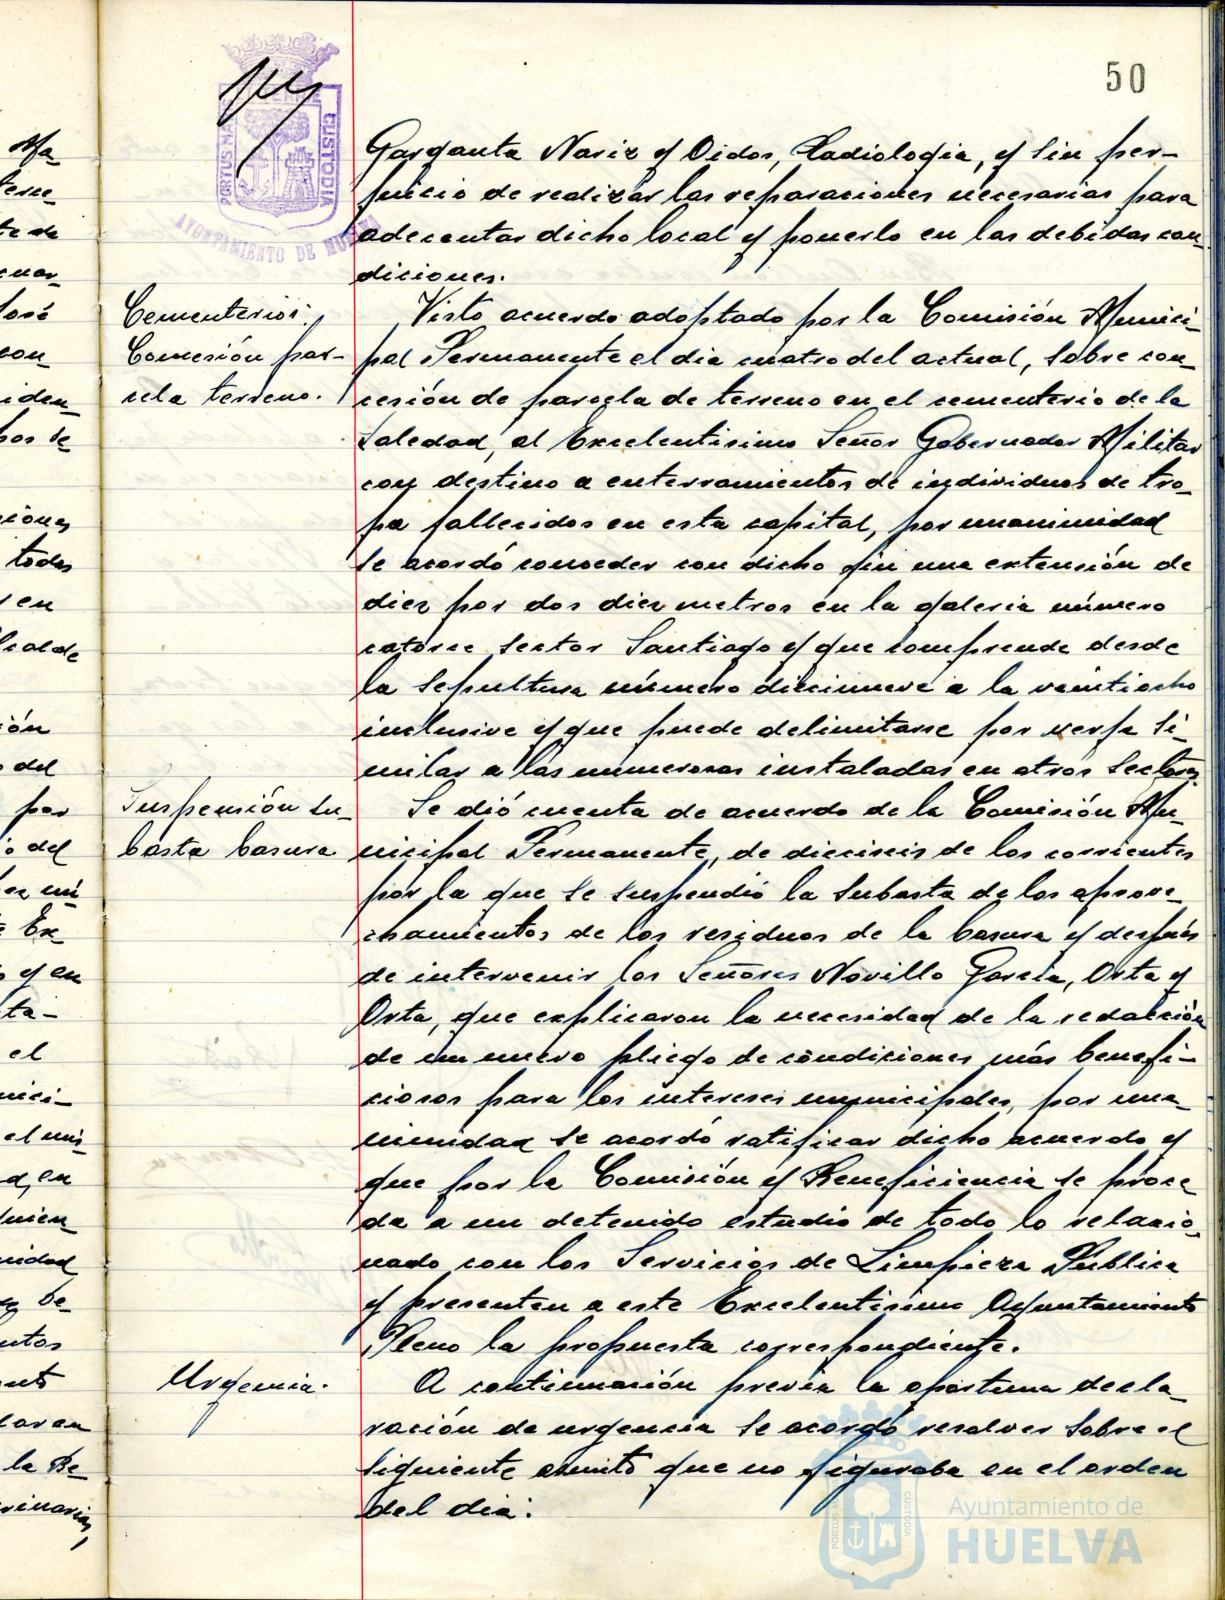 50
PORTUS MARIS CUSTODIA
AYUNTAMIENTO DE HUELVA
Garganta Nariz y Oidos, Radiologia, y sin per-
juicio de realizar las reparaciones necesarias para
adecentar dicho local y ponerlo en las debidas con-
diciones.
Cementerios:
Concesión par-
cela terreno.
Visto acuerdo adoptado por la Comisión Munici-
pal Permanente el dia cuatro del actual, sobre con-
cesión de parcela de terreno en el cementerio de la
Soledad, al Excelentisimo Señor Gobernador Militar
con destino a enterramientos de individuos de tro-
pa fallecidos en esta capital, por unanimidad
se acordó conceder con dicho fin una extensión de
diez por dos diez metros en la galeria número
catorce sector Santiago y que comprende desde
la sepultura número diecinueve a la veintiocho
inclusive y que puede delimitarse por verja si-
milar a las numerosas instaladas en otros sectores.
Suspensión su-
basta basura
Se dió cuenta de acuerdo de la Comisión Mu-
nicipal Permanente, de dieciseis de los corrientes
por la que se suspendió la subasta de los aprove-
chamientos de los residuos de la basura y después
de intervenir los Señores Novillo García, Orta y
Orta, que explicaron la necesidad de la redacción
de un nuevo pliego de condiciones más benefi-
ciosos para los intereses municipales, por una-
nimidad se acordó ratificar dicho acuerdo y
que por la Comisión y Beneficiencia se proce-
da a un detenido estudio de todo lo relacio-
nado con los Servicios de Limpieza Pública
y presenten a este Excelentisimo Ayuntamiento
Pleno la propuesta correspondiente.
Urgencia.
A continuación previa la oportuna decla-
ración de urgencia se acordó resolver sobre el
siguiente asunto que no figuraba en el orden
del dia:
Ayuntamiento de
HUELVA